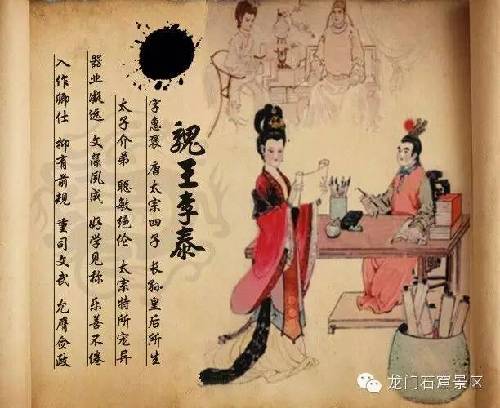 魏王李泰
字惠褒 唐太宗四子 长孙皇后所生
太子介弟 聪敏绝伦 太宗特所宠异
器业凝远 文藻夙成 好学见称 乐善不倦
入作卿仕 抑有前规 重司文武 允膺佥政
龙门石窟景区